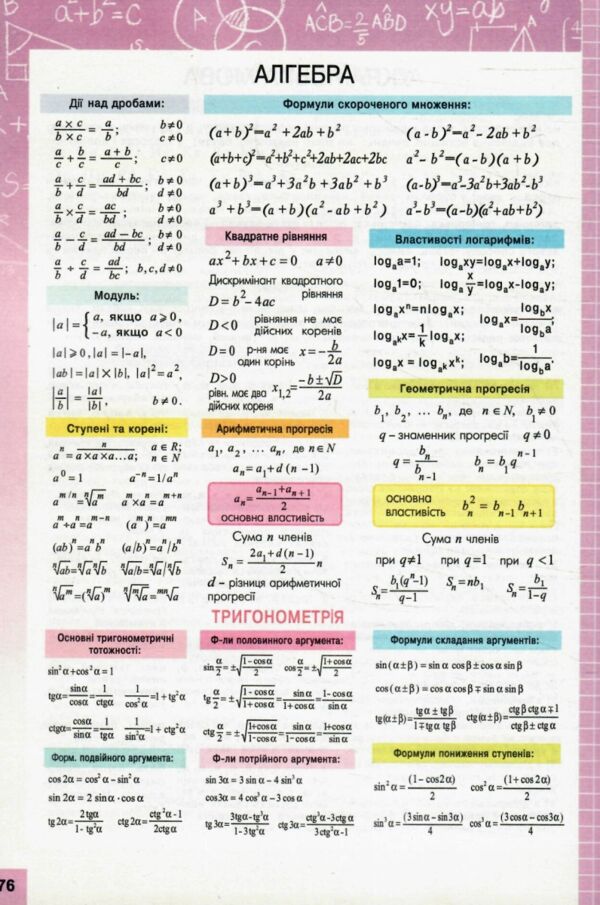 a²+b²=C
AĈB=2/5 AB̂D
xy=ab
АЛГЕБРА
Дії над дробами:
(a × c)/(b × c) = a/b; b≠0 c≠0
a/c + b/c = (a + b)/c; c≠0
a/b + c/d = (ad + bc)/bd; b≠0 d≠0
a/b × c/d = ac/bd; b≠0 d≠0
a/b - c/d = (ad - bc)/bd; b≠0 d≠0
a/b ÷ c/d = ad/bc; b,c,d≠0
Модуль:
|a| = { a, якщо a⩾0,
-a, якщо a<0
|a|⩾0, |a| = |-a|,
|ab| = |a| × |b|, |a|² = a²,
|a/b| = |a|/|b|, b≠0.
Ступені та корені:
aⁿ = a×a×a...a; a∈R; n∈N
n
a⁰ = 1 a⁻ⁿ = 1/aⁿ
a^(m/n) = ⁿ√aᵐ aᵐ × aⁿ = aᵐ⁺ⁿ
aᵐ ÷ aⁿ = aᵐ⁻ⁿ (aᵐ)ⁿ = aᵐⁿ
(ab)ⁿ = aⁿbⁿ (a/b)ⁿ = aⁿ/bⁿ
ⁿ√ab = ⁿ√a ⁿ√b ⁿ√a/b = ⁿ√a/ⁿ√b
ⁿ√aᵐ = (ⁿ√a)ᵐ ⁿ√ᵐ√a = ᵐⁿ√a
Формули скороченого множення:
(a+b)² = a² + 2ab + b² (a - b)² = a² - 2ab + b²
(a+b+c)² = a²+b²+c²+2ab+2ac+2bc a² - b² = (a - b)(a + b)
(a+b)³ = a³+3a²b + 3ab² + b³ (a-b)³ = a³-3a²b+3ab²-b³
a³ + b³ = (a + b)(a² - ab + b²) a³-b³ = (a-b)(a²+ab+b²)
Квадратне рівняння
ax² + bx + c = 0 a≠0
Дискримінант квадратного
рівняння
D = b² - 4ac
D<0 рівняння не має
дійсних коренів
D=0 р-ня має один корінь x = -b/2a
D>0
рівн. має два x₁,₂ = (-b±√D)/2a
дійсних кореня
Властивості логарифмів:
logₐa=1; logₐxy=logₐx+logₐy;
logₐ1=0; logₐ x/y = logₐx-logₐy;
logₐxⁿ = nlogₐx; logₐx = log_b x/log_b a;
log_aᵏ x = 1/k logₐx;
logₐx = log_aᵏ xᵏ; logₐb = 1/log_b a.
Арифметична прогресія
a₁, a₂, ... aₙ, де n∈N
aₙ = a₁ + d (n -1)
aₙ = (aₙ₋₁ + aₙ₊₁)/2
основна властивість
Сума n членів
Sₙ = (2a₁ + d(n - 1))/2 n
d - різниця арифметичної
прогресії
Геометрична прогресія
b₁, b₂, ... bₙ, де n∈N, b₁≠0
q - знаменник прогресії q≠0
q = bₙ/bₙ₋₁ bₙ = b₁qⁿ⁻¹
основна
властивість bₙ² = bₙ₋₁ bₙ₊₁
Сума n членів
при q≠1 при q=1 при q <1
Sₙ = b₁(qⁿ-1)/(q-1) Sₙ = nb₁ Sₙ = b₁/(1-q)
ТРИГОНОМЕТРІЯ
Основні тригонометричні
тотожності:
sin²α+cos²α = 1
tgα = sinα/cosα = 1/ctgα 1/cos²α = 1+ tg²α
ctgα = cosα/sinα = 1/tgα 1/sin²α = 1+ ctg²α
Форм. подвійного аргумента:
cos 2α = cos² α – sin² α
sin 2α = 2 sin α · cos α
tg 2α = 2tgα/(1- tg²α) ctg 2α = (ctg²α -1)/2ctgα
Ф-ли половинного аргумента:
sin α/2 = ±√((1- cosα)/2) cos α/2 = ±√((1+ cosα)/2)
tg α/2 = ±√((1 - cosα)/(1+cosα)) = sin α/(1+ cosα) = (1- cosα)/sin α
ctg α/2 = ±√((1+cosα)/(1- cosα)) = sin α/(1- cosα) = (1+cosα)/sin α
Ф-ли потрійного аргумента:
sin 3α = 3 sin α - 4 sin³ α
cos3α = 4 cos³ α – 3 cos α
tg 3α = (3tgα-tg³α)/(1-3tg²α) ctg 3α = (ctg³α-3ctg α)/(3ctg²α-1)
Формули складання аргументів:
sin (α±β) = sin α cosβ ± cos α sin β
cos (α±β) = cos α cosβ ∓ sin α sin β
tg(α±β) = (tgα ± tgβ)/(1∓tgα tgβ) ctg(α±β) = (ctgβ ctgα∓1)/(ctgβ± ctgα)
Формули пониження ступенів:
sin² α = (1- cos2α)/2 cos² α = (1+ cos2α)/2
sin³ α = (3sinα - sin3α)/4 cos³ α = (3cosα - cos3α)/4
76